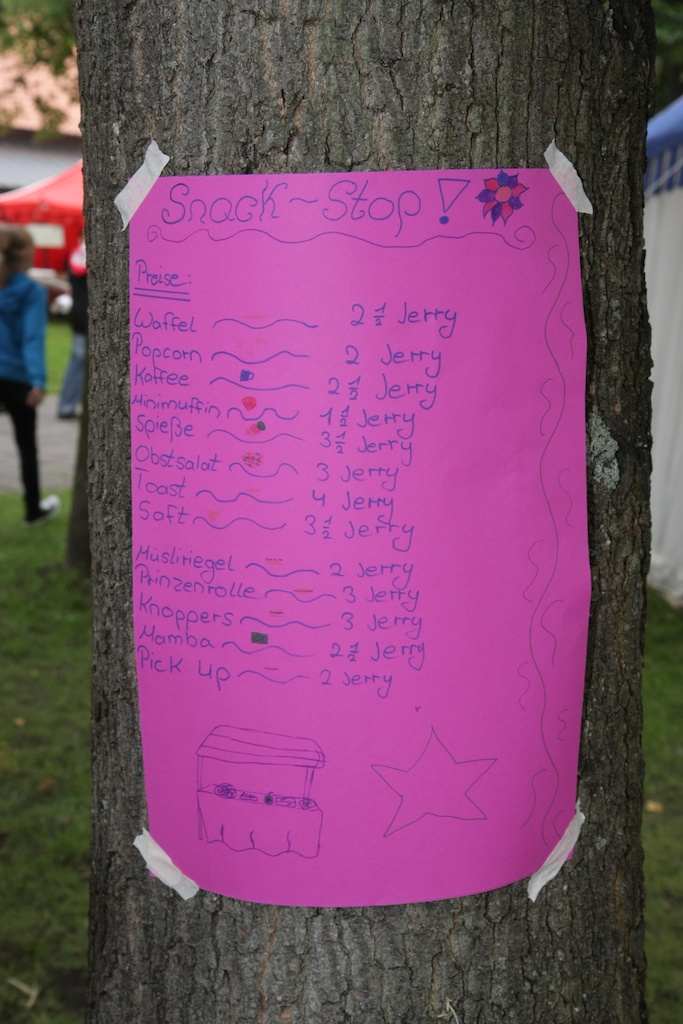 Snack~Stop!
Preise:
Waffel 2 1/2 Jerry
Popcorn 2 Jerry
Kaffee 2 1/2 Jerry
Minimuffin 1 1/2 Jerry
Spieße 3 1/2 Jerry
Obstsalat 3 Jerry
Toast 4 Jerry
Saft 3 1/2 Jerry
Müsliriegel 2 Jerry
Prinzenrolle 3 Jerry
Knoppers 3 Jerry
Mamba 2 1/2 Jerry
Pick up 2 Jerry